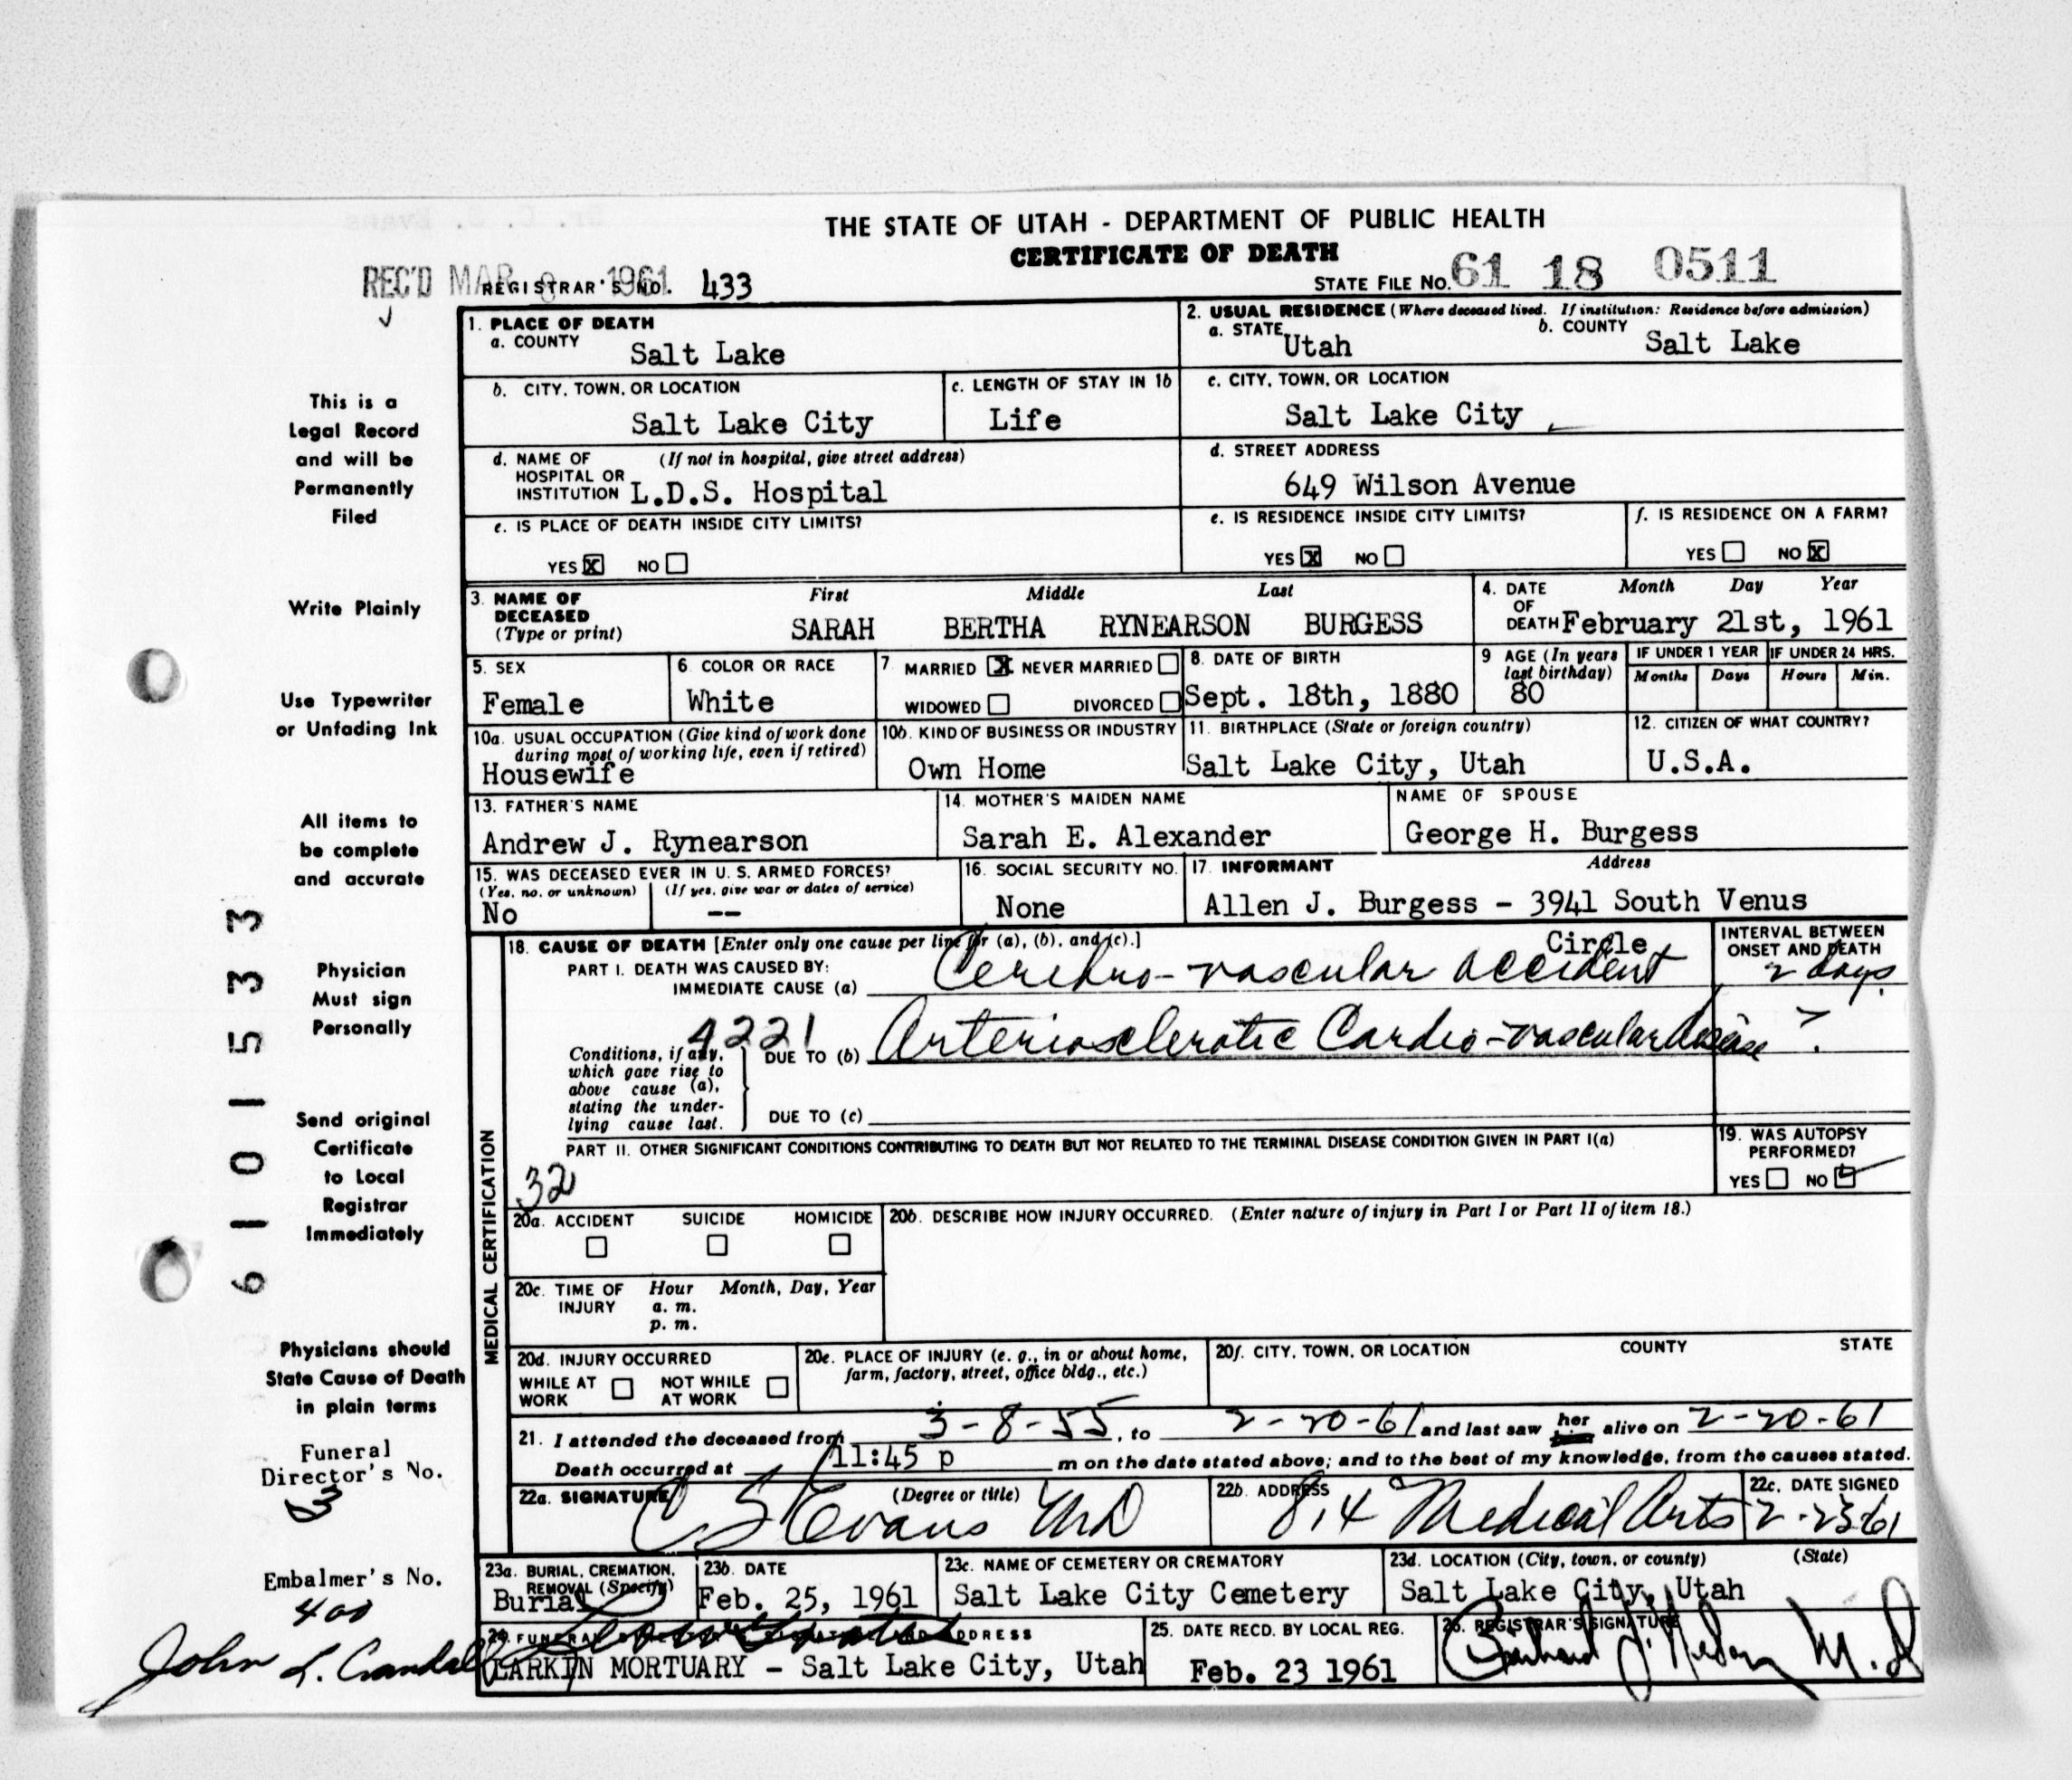 THE STATE OF UTAH - DEPARTMENT OF PUBLIC HEALTH
CERTIFICATE OF DEATH
REC'D MAR 1961 REGISTRAR'S NO. 433
STATE FILE NO. 61 18 0511
This is a
Legal Record
and will be
Permanently
Filed
Write Plainly
Use Typewriter
or Unfading Ink
All items to
be complete
and accurate
Physician
Must sign
Personally
Send original
Certificate
to Local
Registrar
Immediately
Physicians should
State Cause of Death
in plain terms
Funeral
Director's No.
Embalmer's No.
400
John L. Crandall
6101533
1. PLACE OF DEATH
a. COUNTY
Salt Lake
2. USUAL RESIDENCE (Where deceased lived. If institution: Residence before admission)
a. STATE Utah
b. COUNTY Salt Lake
b. CITY, TOWN, OR LOCATION
Salt Lake City
c. LENGTH OF STAY IN 1b
Life
c. CITY, TOWN, OR LOCATION
Salt Lake City
d. NAME OF (If not in hospital, give street address)
HOSPITAL OR
INSTITUTION L.D.S. Hospital
d. STREET ADDRESS
649 Wilson Avenue
e. IS PLACE OF DEATH INSIDE CITY LIMITS?
YES X NO
e. IS RESIDENCE INSIDE CITY LIMITS?
YES X NO
f. IS RESIDENCE ON A FARM?
YES NO X
3. NAME OF DECEASED (Type or print)
First Middle Last
SARAH BERTHA RYNEARSON BURGESS
4. DATE OF DEATH Month Day Year
February 21st, 1961
5. SEX
Female
6. COLOR OR RACE
White
7. MARRIED X NEVER MARRIED
WIDOWED DIVORCED
8. DATE OF BIRTH
Sept. 18th, 1880
9 AGE (In years last birthday)
80
IF UNDER 1 YEAR IF UNDER 24 HRS.
Months Days Hours Min.
10a. USUAL OCCUPATION (Give kind of work done
during most of working life, even if retired)
Housewife
10b. KIND OF BUSINESS OR INDUSTRY
Own Home
11. BIRTHPLACE (State or foreign country)
Salt Lake City, Utah
12. CITIZEN OF WHAT COUNTRY?
U.S.A.
13. FATHER'S NAME
Andrew J. Rynearson
14. MOTHER'S MAIDEN NAME
Sarah E. Alexander
NAME OF SPOUSE
George H. Burgess
15. WAS DECEASED EVER IN U. S. ARMED FORCES?
(Yes, no, or unknown) (If yes, give war or dates of service)
No --
16. SOCIAL SECURITY NO.
None
17. INFORMANT Address
Allen J. Burgess - 3941 South Venus
Circle
MEDICAL CERTIFICATION
18. CAUSE OF DEATH [Enter only one cause per line for (a), (b), and (c).]
PART I. DEATH WAS CAUSED BY:
IMMEDIATE CAUSE (a) Cerebro-vascular accident
INTERVAL BETWEEN
ONSET AND DEATH
2 days.
4221
Conditions, if any,
which gave rise to
above cause (a),
stating the under-
lying cause last.
DUE TO (b) Arteriosclerotic Cardio-vascular disease ?
DUE TO (c)
PART II. OTHER SIGNIFICANT CONDITIONS CONTRIBUTING TO DEATH BUT NOT RELATED TO THE TERMINAL DISEASE CONDITION GIVEN IN PART I(a)
32
19. WAS AUTOPSY
PERFORMED?
YES NO
20a. ACCIDENT SUICIDE HOMICIDE
20b. DESCRIBE HOW INJURY OCCURRED. (Enter nature of injury in Part I or Part II of item 18.)
20c. TIME OF INJURY Hour Month, Day, Year
a. m.
p. m.
20d. INJURY OCCURRED
WHILE AT WORK NOT WHILE AT WORK
20e. PLACE OF INJURY (e. g., in or about home,
farm, factory, street, office bldg., etc.)
20f. CITY, TOWN, OR LOCATION COUNTY STATE
21. I attended the deceased from 3-8-55, to 2-20-61 and last saw her alive on 2-20-61
Death occurred at 11:45 p m on the date stated above; and to the best of my knowledge, from the causes stated.
22a. SIGNATURE (Degree or title)
C S Evans MD
22b. ADDRESS
814 Medical Arts
22c. DATE SIGNED
2-23-61
23a. BURIAL, CREMATION,
REMOVAL (Specify)
Burial
23b. DATE
Feb. 25, 1961
23c. NAME OF CEMETERY OR CREMATORY
Salt Lake City Cemetery
23d. LOCATION (City, town, or county) (State)
Salt Lake City, Utah
24. FUNERAL ADDRESS
LARKIN MORTUARY - Salt Lake City, Utah
25. DATE RECD. BY LOCAL REG.
Feb. 23 1961
26. REGISTRAR'S SIGNATURE
M.D